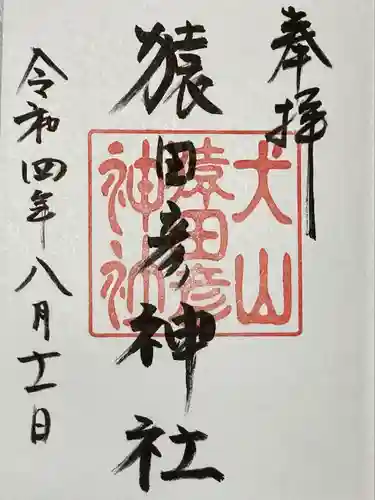 奉拝
猿田彦神社
犬山
猿田彦
神社
令和四年八月十一日